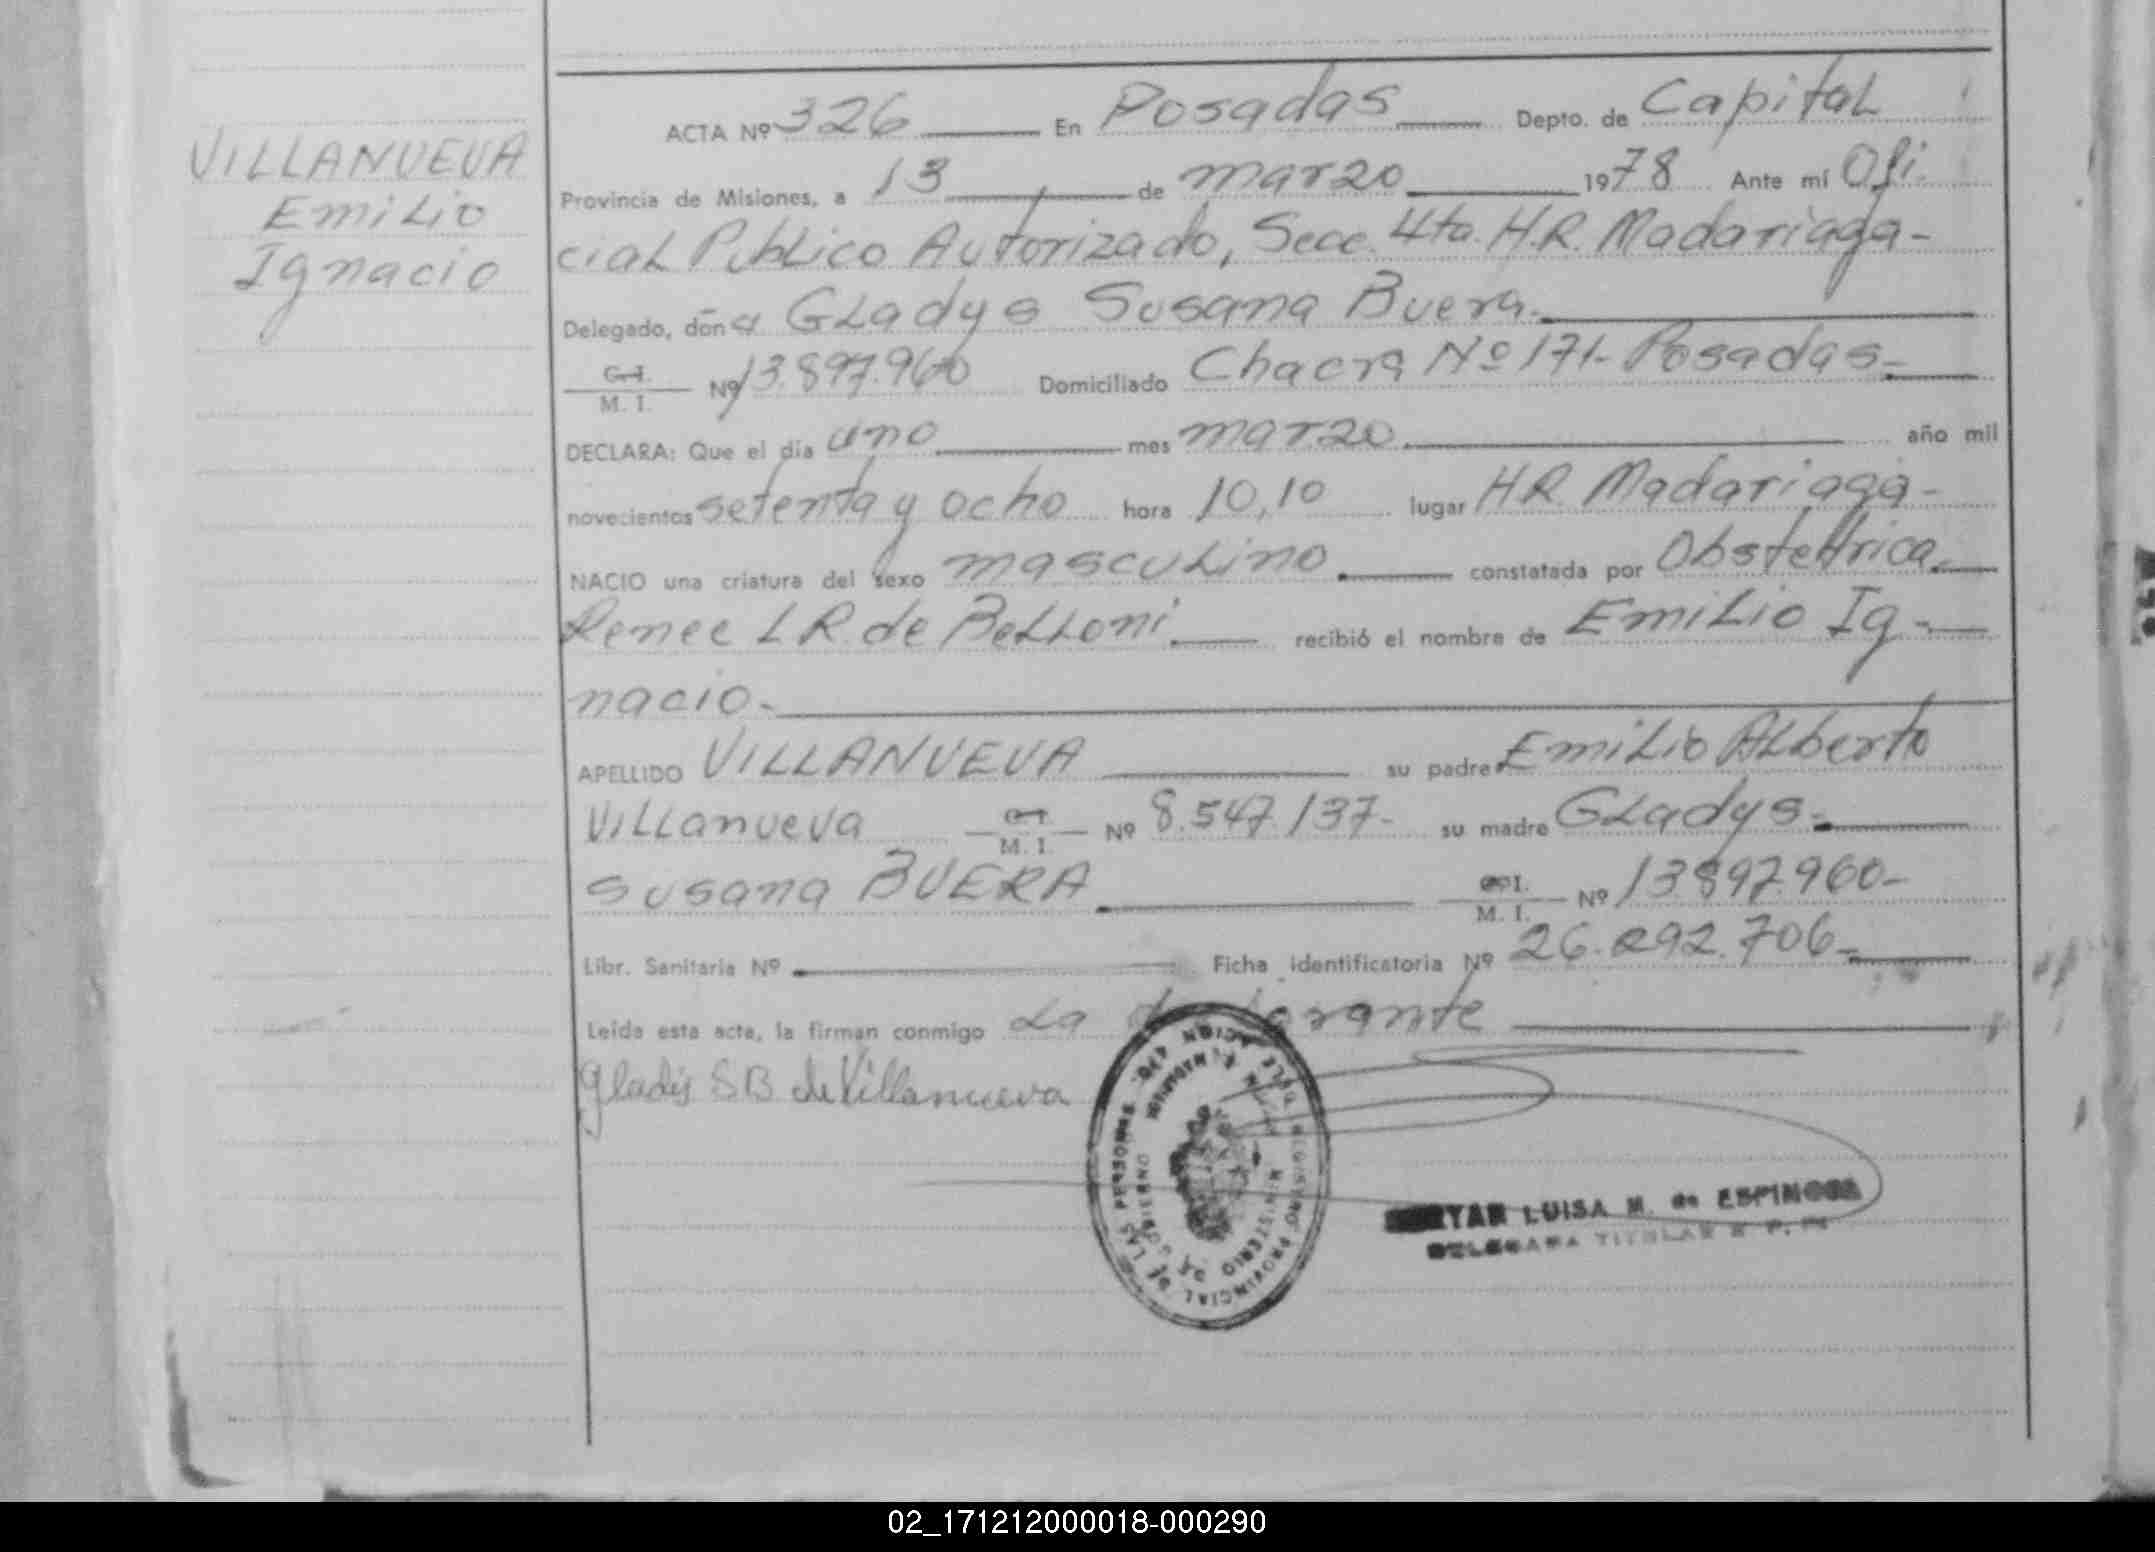 VILLANUEVA
Emilio
Ignacio
ACTA Nº 326 En Posadas Depto. de Capital
Provincia de Misiones, a 13 de marzo 1978 Ante mí Ofi-
cial Publico Autorizado, Secc. 4ta. H.R. Madariaga-
Delegado, doña Gladys Susana Buera.
C.I. M. I. Nº 13.897.960 Domiciliado Chacra Nº 171- Posadas-
DECLARA: Que el día uno mes marzo año mil
novecientos setenta y ocho hora 10,10 lugar H.R. Madariaga-
NACIO una criatura del sexo masculino constatada por Obstettrica
Renee L R. de Belloni recibió el nombre de Emilio Ig-
nacio-
APELLIDO VILLANUEVA su padre Emilio Alberto
Villanueva C.I. M. I. Nº 8.547.137- su madre Gladys-
Susana BUERA C.I. M. I. Nº 13.897.960-
Libr. Sanitaria Nº Ficha identificatoria Nº 26.292.706-
Leída esta acta, la firman conmigo La declarante
Gladis SB de Villanueva
REGISTRO PROVINCIAL DE LAS PERSONAS
MINISTERIO DE GOBIERNO
LUISA M. de ESPINOSA
DELEGADA TITULAR
02_171212000018-000290